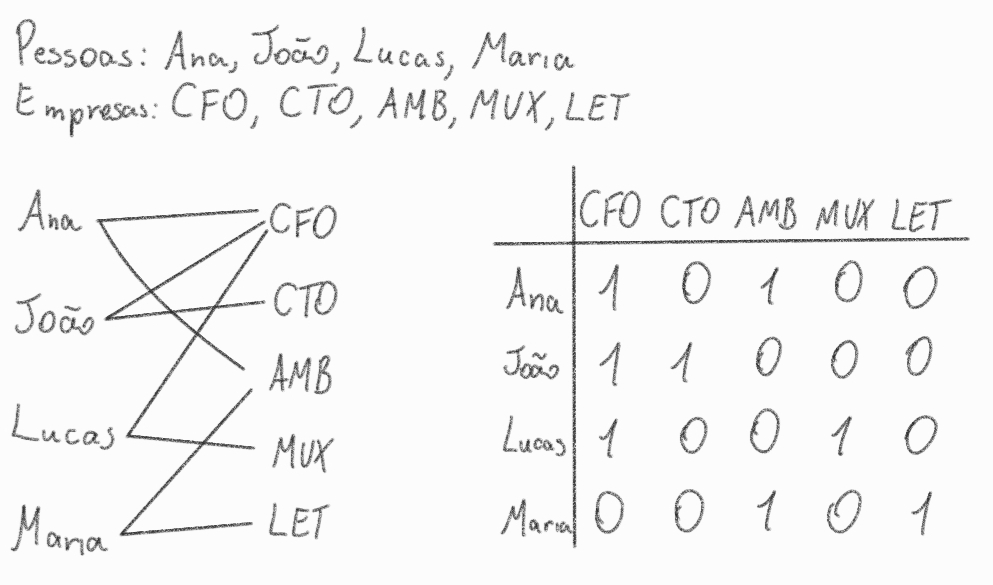 Pessoas: Ana, João, Lucas, Maria
Empresas: CFO, CTO, AMB, MUX, LET
Ana CFO
João CTO
AMB
Lucas MUX
Maria LET
CFO CTO AMB MUX LET
Ana 1 0 1 0 0
João 1 1 0 0 0
Lucas 1 0 0 1 0
Maria 0 0 1 0 1